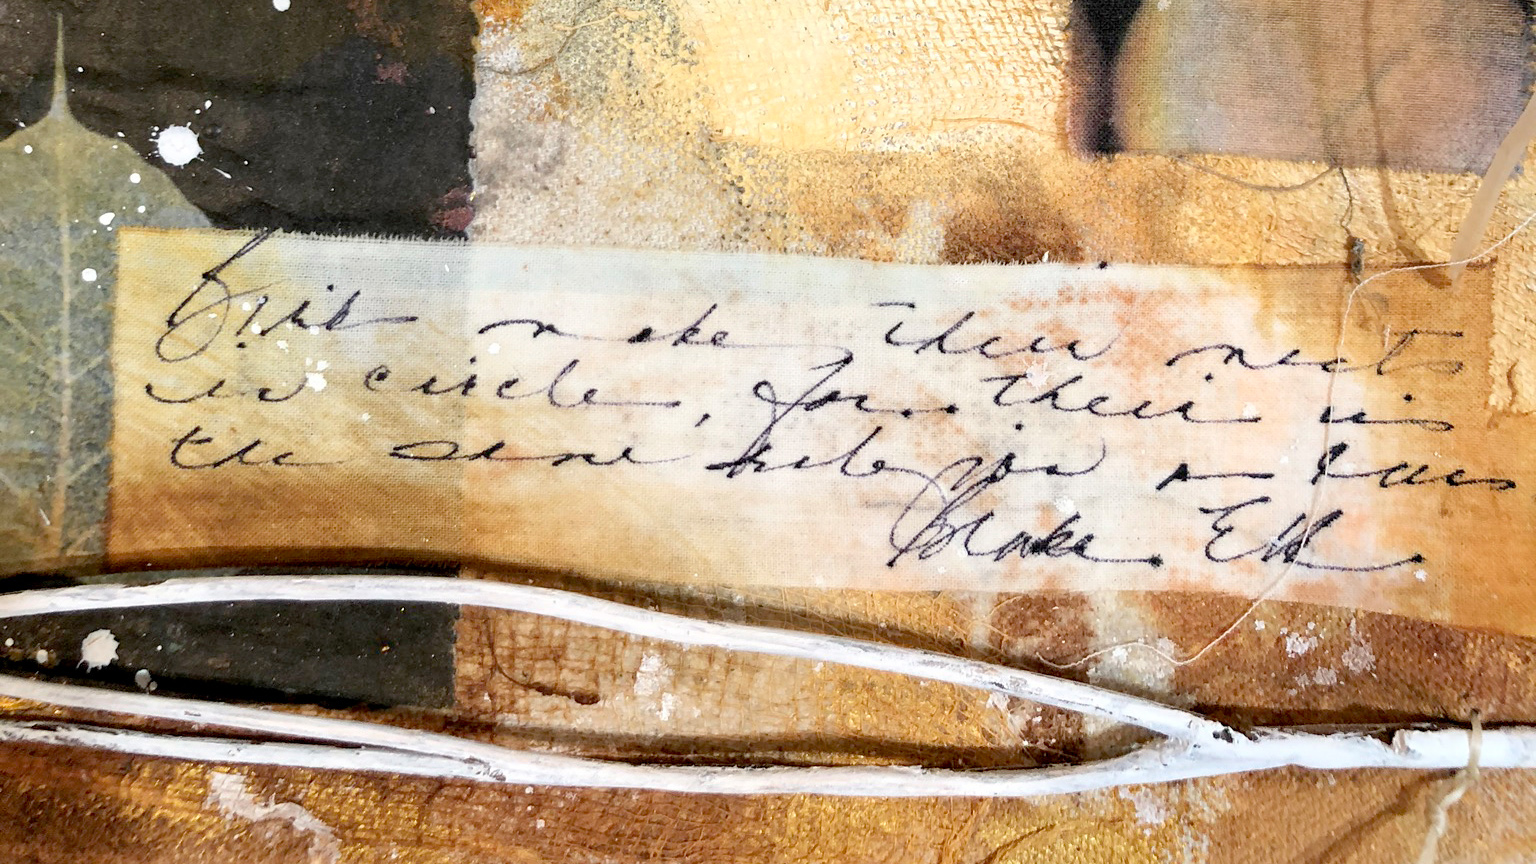 Birds make their nests
in circles, for theirs is
the same religion as ours
Black Elk.